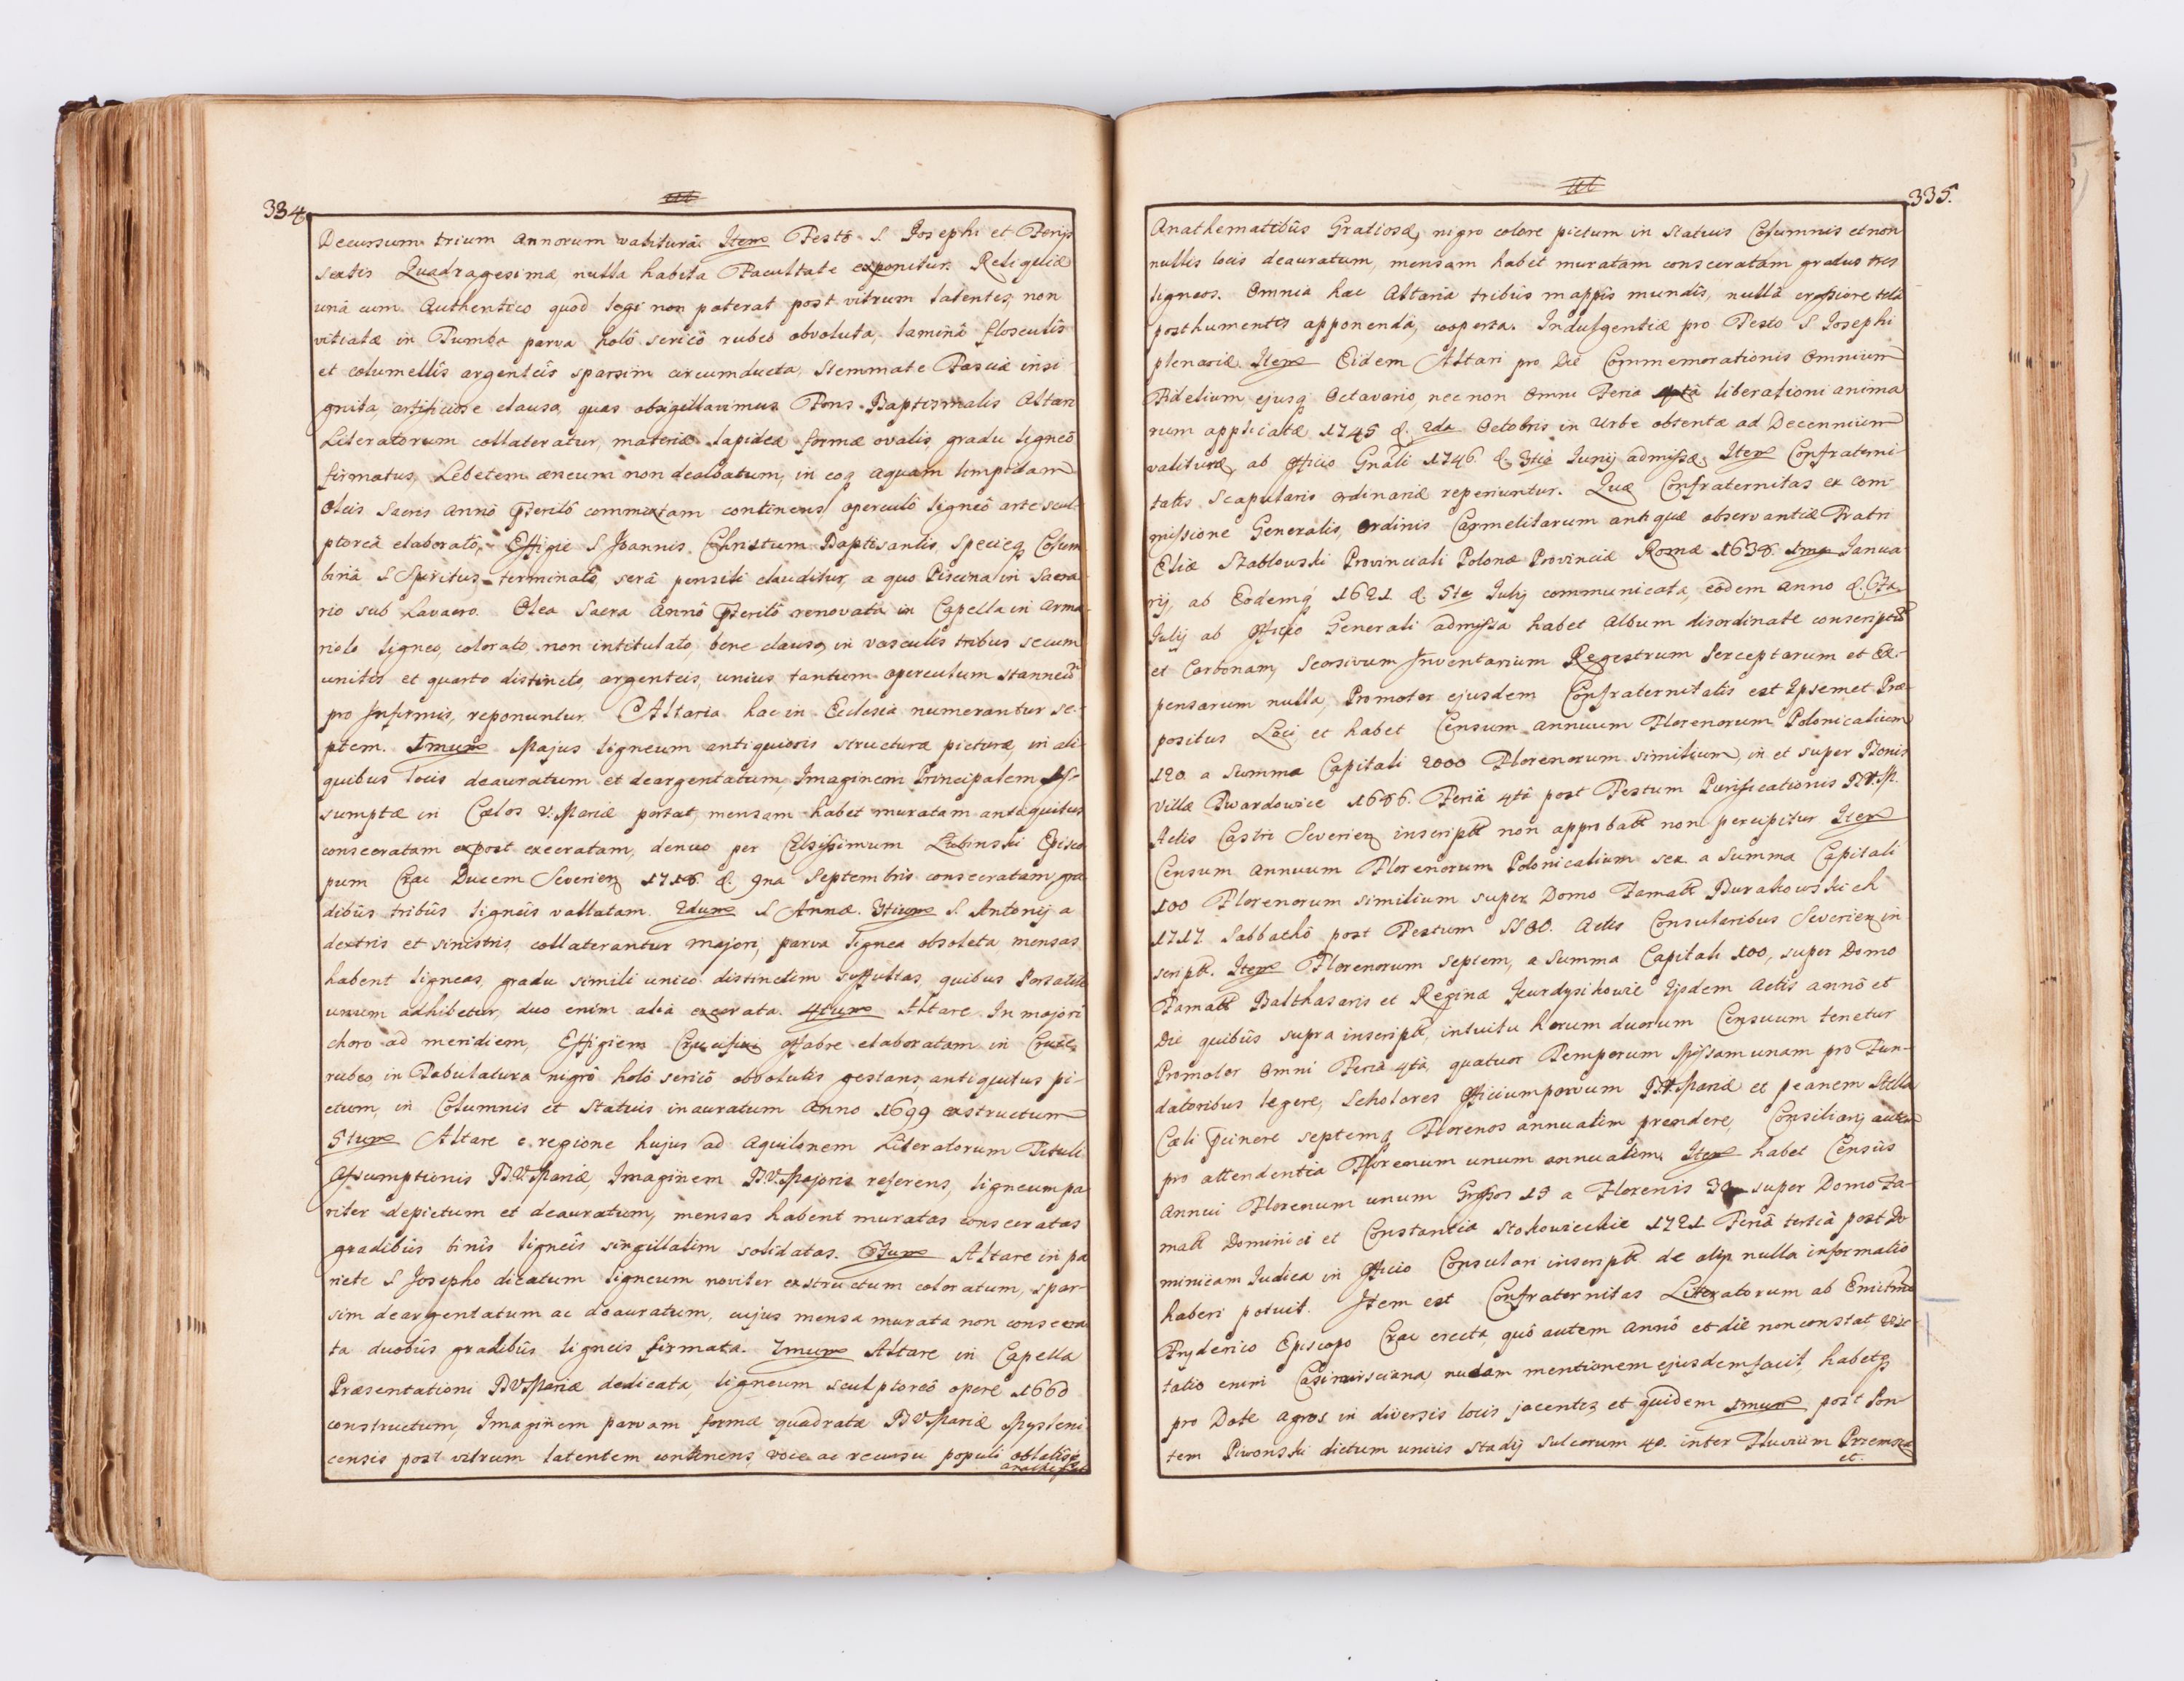 334
Decursum trium Annorum valiturâ. Item Festô S. Josephi et Ferijs
sextis Quadragesimæ, nulla habita Facultate exponitur. Reliquiæ
unà cum Authentico quod legi non poterat post vitrum latentes, non
vitiatæ in Tumba parva holô sericô rubeô obvoluta, laminâ flosculis
et columellis argenteis sparsim circumducta, Stemmate Fasciæ insi-
gnita, artificiose clausa, quas obsigillavimus. Fons Baptismalis Altari
Literatorum collateratur, materiæ lapideæ formæ ovalis, gradu ligneô
firmatus, Lebetem æneum non dealbatum, in eoq aquam limpidam
Oleis Sacris annô pteritô commixtam continens, operculô ligneô arte scul-
ptoreâ elaboratô, Effigie S. Joannis Christum Baptisantis, Specieq Colum-
binâ S. Spiritus terminatô, serâ pensili clauditur, a quo Piscina in Sacra-
rio sub Lavacro. Olea Sacra annô pteritô renovata in Capella in arma-
riolo ligneo, colorato non intitulato, bene clauso, in vasculis tribus secum
unitis et quarto distincto, argenteis, unius tantum operculum stanneû
pro Infirmis, reponuntur. Altaria hac in Ecclesia numerantur se-
ptem. 1mum Majus ligneum antiquioris structuræ picturæ, in ali-
quibus locis deauratum et deargentatum, Imaginem Principalem As-
sumptæ in Cælos V. Mariæ portat, mensam habet muratam antiquitus
consecratam expost execratam, denuo per Celsissimum Łubinski Episco-
pum Crac Ducem Severien 1718. d. 9na Septembris consecratam gra-
dibus tribus ligneis vallatam. 2dum S. Annæ. 3tium S. Antonij a
dextris et sinistris, collaterantur majori, parva lignea obsoleta, mensas
habent ligneas, gradu simili unico distinctim suffultas, quibus Portatile
unum adhibetur, duo enim alia execrata. 4tum Altare In majori
choro ad meridiem, Effigiem Crucifixi affabre elaboratam in Cruce
rubeo, in Tabulatura nigrô holô sericô obvolutis gestans, antiquitus pi-
ctum, in Columnis et Statuis inauratum Anno 1699 exstructum
5tum Altare e regione hujus ad Aquilonem Literatorum Tituli
Assumptionis B.V. Mariæ, Imaginem B.V. Majoris referens, ligneum pa-
riter depictum et deauratum, mensas habent muratas consecratas
gradibus binis ligneis singillatim solidatas. 6tum Altare in pa-
riete S. Josepho dicatum ligneum noviter exstructum coloratum, spar-
sim deargentatum ac deauratum, cujus mensa murata non consecra-
ta duobus gradibus ligneis firmata. 7mum Altare in Capella
Præsentationi B V Mariæ dedicata, ligneum sculptoreô opere 1660
constructum, Imaginem parvam formæ quadratæ B V Mariæ Mysleni-
censis post vitrum latentem continens, voce ac recursu populi oblatisq
335.
Anathematibus Gratiosâ, nigro colore pictum in Statuis Columnis et non
nullis locis deauratum, mensam habet muratam consecratam gradus tres
ligneos. Omnia hæc Altaria tribus mappis mundis, nullâ crassiore telâ
posthumentis apponendâ, cooperta. Indulgentiæ pro Festo S. Josephi
plenariæ. Item Eidem Altari pro Die Commemorationis Omnium
Fidelium ejusq Octavario, nec non omni Feria liberationi anima
rum applicatæ 1745 d. 2da Octobris in Urbe obtentæ ad Decennium
valituræ, ab Officio Gnâli 1746. d. 3tia Junij admissæ. Item Confraterni-
tatis Scapularis ordinariæ reperiuntur. Quæ Confraternitas ex com-
missione Generalis, Ordinis Carmelitarum antiquæ observantiæ Fratri
Eliæ Szablowski Provinciali Polonæ Provinciæ Romæ 1638. 1ma Janua-
rij, ab Eodemq 1621 d. 5ta Julij communicata, eôdem anno d. 6ta
Julij ab Officio Generali admissa habet Album disordinate conscriptû
et Carbonam, Seorsivum Inventarium Regestrum Perceptarum et Ex-
pensarum nulla, Promotor ejusdem Confraternitatis est Ipsemet Præ-
positus Loci et habet Censum annuum Florenorum Polonicalium
120 a Summa Capitali 2000 Florenorum similium, in et super Bonis
Villæ Twardowice 1686. Feriâ 4tâ post Festum Purificationis B.V.M.
Actis Castri Severien inscript non approbat non percipitur Item
Censum annuum Florenorum Polonicalium sex a Summa Capitali
100 Florenorum similium super Domo Famat Burakowskich
1717 Sabbathô post Festum SS. Actis Consularibus Severien in-
script. Item Florenorum Septem, a Summa Capitali 100, super Domo
Famat Balthasaris et Reginæ Ijsdem Actis annô et
Die quibus supra inscript, intuitu horum duorum Censuum tenetur
Promotor omni Feriâ 4tâ, quatuor Temporum Missam unam pro Fun-
datoribus legere, Scholares Officium parvum B.V. Mariæ et peanem Stella
Cæli pcinere septemq Florenos annuatim prendere, Consiliarij autem
pro attendentia Florenum unum annuatim. Item habet Censûs
annui Florenum unum Grossos 19 a Florenis super Domo Fa-
mat Dominici et Constantiæ 1721 Feriâ tertiâ post Do-
minicam Judica in Officio Consulari inscript de alijs nulla informatio
haberi potuit. Item est Confraternitas Literatorum ab Emictmo
Fryderico Episcopo Crac erecta, quô autem annô et die non constat Visi-
tatio enim Casimirsciana, nudam mentionem ejusdem facit, habetq
pro Dote agros in diversis locis jacentes et quidem 1mum post Pon-
tem Piwonski dictum unius stadij sulcorum 40. inter Fluvium Przemsza
et